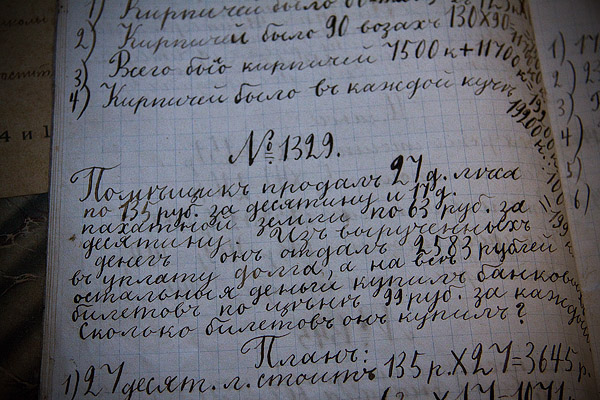 1) Кирпичей было
2) Кирпичей было 90 возахъ 130X90=
3) Всего было кирпичей 7500 к+11700 к=
4) Кирпичей было въ каждой кучѣ
19200
№ 1329.
Помѣщикъ продалъ 27 д. лѣса
по 135 руб. за десятину и 17 д.
пахатной земли по 63 руб. за
десятину. Изъ вырученныхъ
денегъ онъ отдалъ 2583 рублей
въ уплату долга, а на всѣ
остальныя деньги купилъ банковыхъ
билетовъ по цѣнѣ 99 руб. за каждый
Сколько билетовъ онъ купилъ?
Планъ:
1) 27 десят. л. стоитъ 135 р.X27=3645 р.
X17=1071
4 и 1
1) 17
2) 23
3)
4)
5)
6)